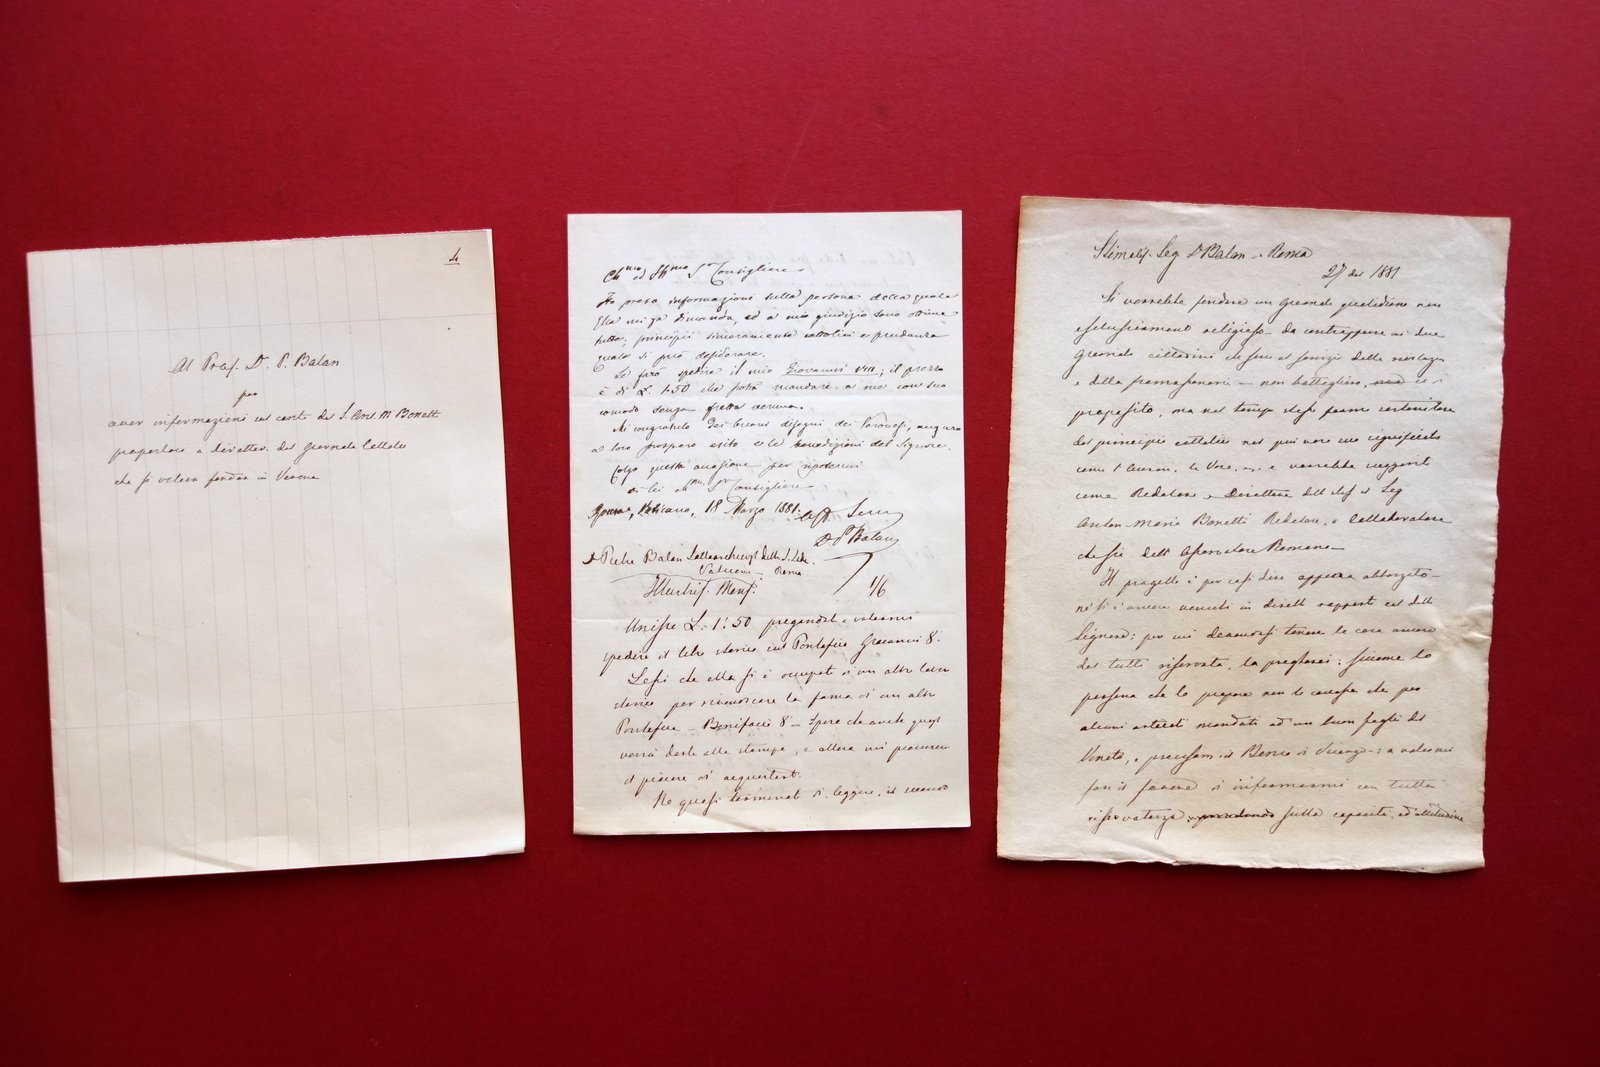 4
Al Prof. D. P. Balan
per
aver informazioni sul conto del S. Ant. M. Bonetti
propostosi a direttore del giornale Cattolico
che si voleva fondar in Verona
Ch.mo ed Ill.mo S.r Consigliere
Ho preso informazioni sulla persona della quale
Ella mi fa dimanda, ed a mio giudizio sono ottime
tutte; principii sinceramente cattolici e prudenza
quale si può desiderare.
Le farò spedire il mio Giovanni VIII; il prezzo
è di L. 1.50 che potrà mandare a me con suo
comodo senza fretta veruna.
Mi congratulo dei buoni disegni dei Veronesi, auguro
a loro prospero esito e le benedizioni del Signore.
Colgo questa occasione per ripetermi
di lei Ch.mo S.r Consigliere
Roma, Vaticano, 18 Marzo 1881.
Aff. Servo
D. P. Balan
D. Pietro Balan Sottoarchivis. della S. Sede.
Vaticano - Roma
Illustris. Mons.
1/6
Unisco L. 1.50 pregandola volermi
spedire il libro storico sul Pontefice Giovanni 8°.
Lessi che ella si è occupato di un altro lavoro
storico per rivendicare la fama di un altro
Pontefice - Bonifacio 8° - spero che anche questo
verrà dato alle stampe, e allora mi procurerò
il piacere di acquistarlo.
Ho quasi terminato di leggere, il secondo
Stimatis. Sig. D. Balan - Roma
27 del 1881
Si vorrebbe fondare un Giornale quotidiano non
esclusivamente religioso da contrapporre ai due
Giornali cittadini che sono al servizio della
e della frammassoneria - non battagliero,
proposito, ma nel tempo stesso fermo sostenitore
dei principii cattolici nel più vero suo significato
come l'Aurora, la Voce, e vorrebbe suggerito
come Redattore e Direttore dell' stesso il Sig
Anton Maria Bonetti Redattore, o Collaboratore
che sia dell' Osservatore Romano
Il progetto è per così dire appena abbozzato
nè si è ancora venuti in diretti rapporti col detto
Signore; per cui devendosi tenere la cosa ancora
del tutto riservata, la pregherei; siccome la
persona che lo propone non lo conosce che per
alcuni articoli mandati ad un buon foglio del
Veneto, e precisam. il Berico di Vicenza; a volermi
fare il favore di informarmi con tutta
riservatezza sulla capacità, ed attitudine